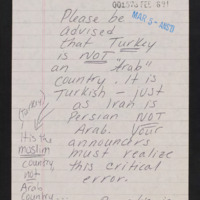 001576 FEB 1991
MAR 5- ANS'D
Please be
advised
that Turkey
is NOT
an "Arab"
country. It is
Turkish - just
as Iran is
Persian NOT
Arab. Your
announcers
must realize
this critical
error.
It is the
moslim
country
not
Arab
Country